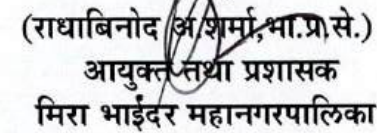 (राधाबिनोद अ.शर्मा,भा.प्र.से.)
आयुक्त तथा प्रशासक
मिरा भाईंदर महानगरपालिका